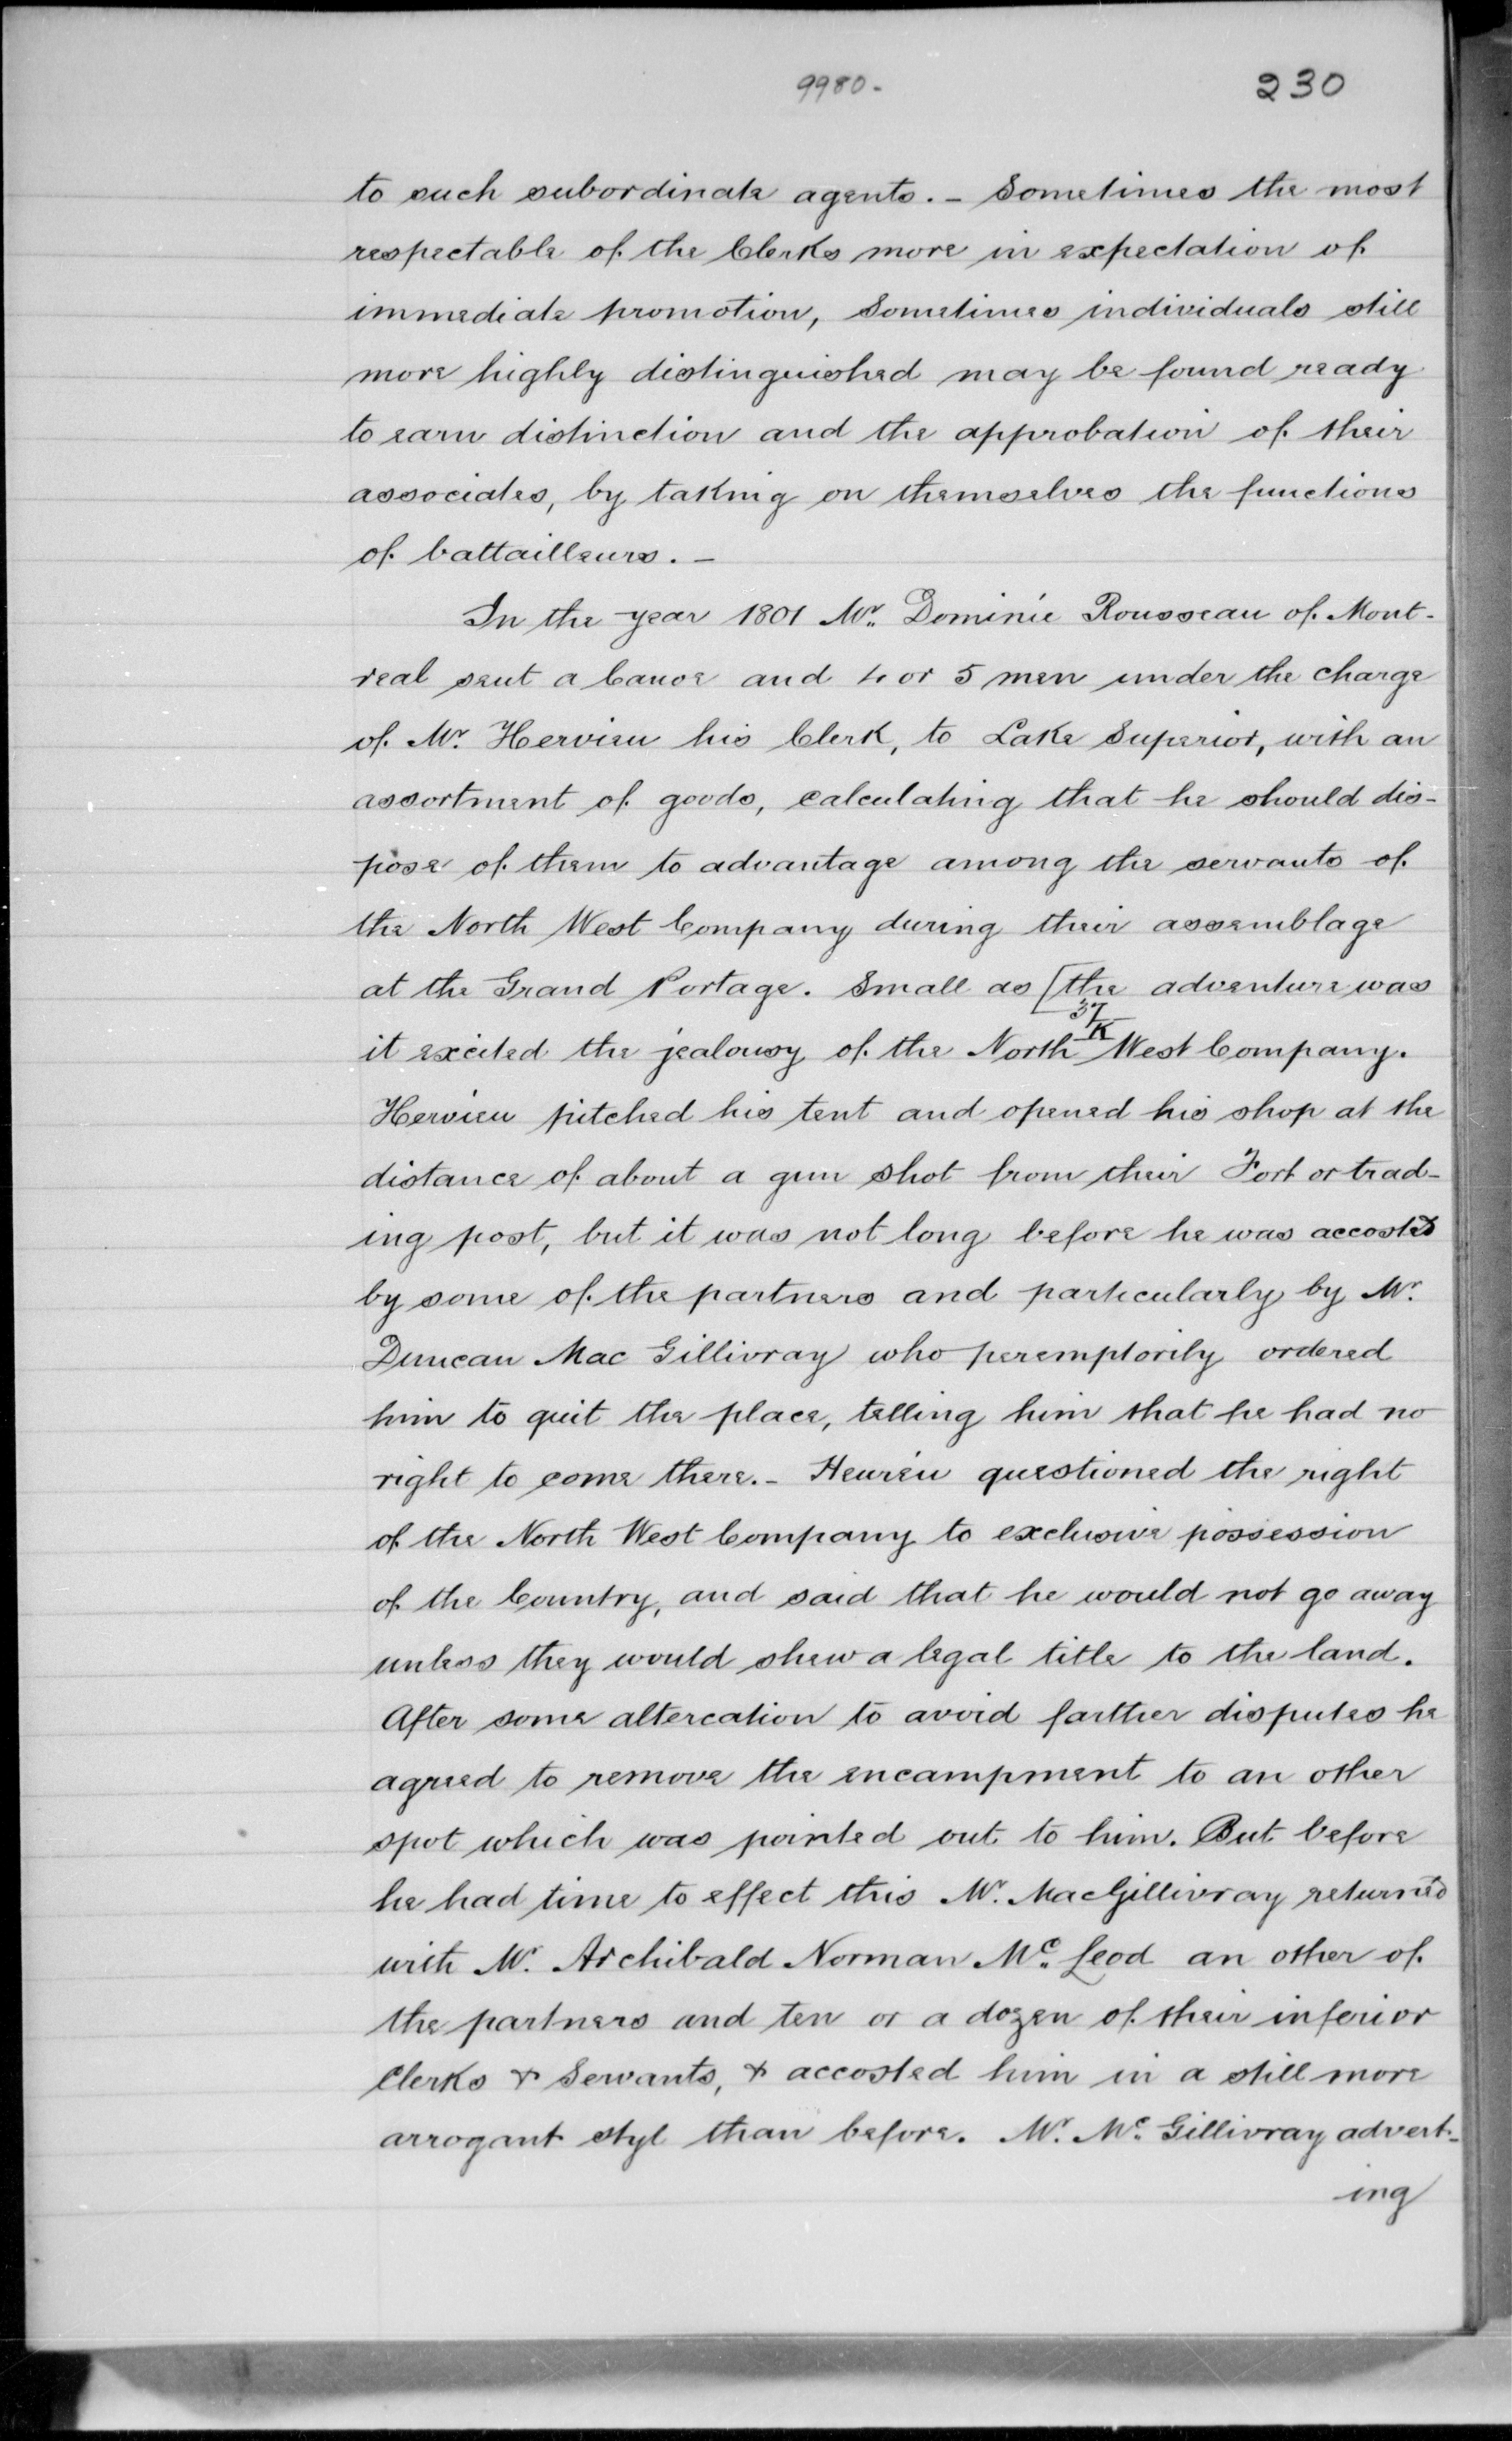 9980-
230
to such subordinate agents. - Sometimes the most
respectable of the Clerks more in expectation of
immediate promotion, Sometimes individuals still
more highly distinguished may be found ready
to earn distinction and the approbation of their
associates, by taking on themselves the functions
of battailleurs. -
In the year 1801 Mr. Dominie Rousseau of Mont-
real sent a Canoe and 4 or 5 men under the charge
of Mr. Hervieu his Clerk, to Lake Superior, with an
assortment of goods, calculating that he should dis-
pose of them to advantage among the servants of
the North West Company during their assemblage
at the Grand Portage. Small as [the adventure was
37/K
it excited the jealousy of the North West Company.
Hervieu pitched his tent and opened his shop at the
distance of about a gun shot from their Fort or trad-
ing post, but it was not long before he was accosted
by some of the partners and particularly by Mr.
Duncan Mac Gillivray who peremptorily ordered
him to quit the place, telling him that he had no
right to come there. - Heurieu questioned the right
of the North West Company to exclusive possession
of the Country, and said that he would not go away
unless they would shew a legal title to the land.
After some altercation to avoid farther disputes he
agreed to remove the encampment to an other
spot which was pointed out to him. But before
he had time to effect this Mr. MacGillivray returned
with Mr. Archibald Norman Mc. Leod an other of
the partners and ten or a dozen of their inferior
Clerks & Servants, & accosted him in a still more
arrogant styl than before. Mr. Mc. Gillivray advert-
ing